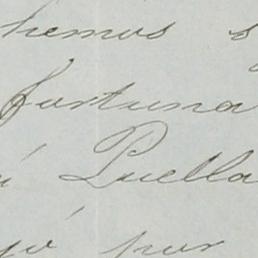 hemos s
fortuna
á Puella
yó por